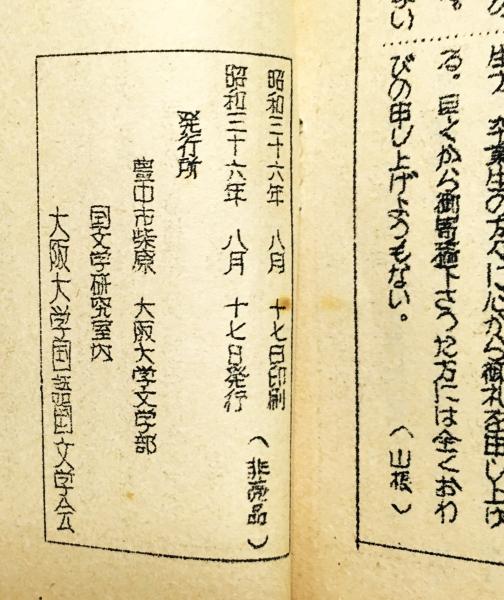 生方、卒業生の方々に心から御礼を申し上げ
る。早くから御寄稿下さった方には全くおわ
びの申し上げようもない。
（山根）
昭和三十六年　八月　十七日印刷
昭和三十六年　八月　十七日発行
（非売品）
発行所
豊中市柴原　大阪大学文学部
国文学研究室内
大阪大学国語国文学会